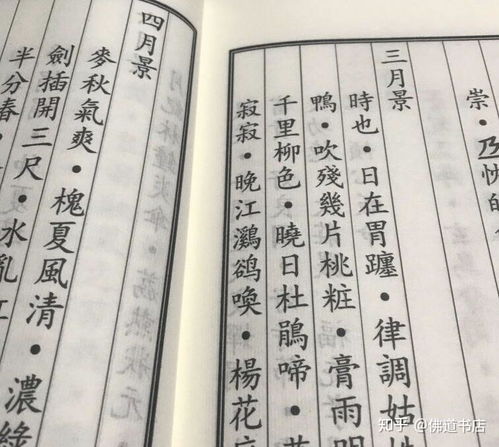 崇•乃
三月景
時也•日在胃躔•律調姑
鴨•吹殘幾片桃粧•膏雨
千里柳色•曉日杜鵑啼•
寂寂•晚江鸂鵒喚•楊花
四月景
麥秋氣爽•槐夏風清•濃綠
劍插開三尺•水亂
半分春•
知乎 @佛道书店